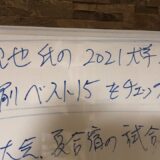 也 氏の 2021 大学
ベスト15 をチェッ
大会、夏合宿の試合